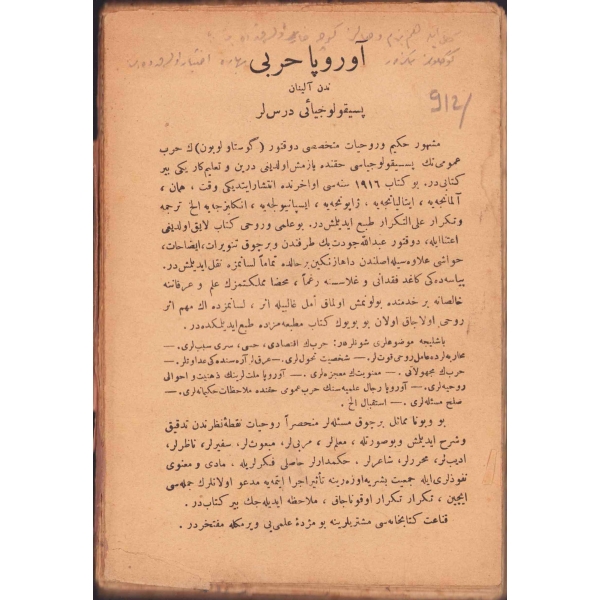 آوروپا حربی
ندن آلینان
پسیقولوجیائی درس‌لر
912/
مشهور حکیم وروحیات متخصصی دوقتور (گوستاولوبون) ك حرب
عمومی‌نك پسیقولوجیاسی حقنده یازمش اولدیغی درین و تعلیم‌کار یکی بیر
کتابی‌در. بو کتاب ۱۹۱٦ سنه‌سی اواخرنده انتشار ایتدیکی وقت ، همان ،
آلمانجه‌یه ، ایتالیانجه‌یه ، ژاپونجه‌یه ، ایسپانیولجه‌یه ، انکلیزجه‌یه الخ ترجمه
وتکرار علی‌التکرار طبع ایدیلمش‌در. بوعلمی وروحی کتاب لایق اولدیغی
اعتناایله ، دوقتور عبدالله جودت بك طرفندن وبرچوق تنویرات ، ایضاحات ،
حواشی علاوه‌سیله اصلندن داها زنکین برحالده تماماً لسانمزه نقل ایدیلمش‌در.
پیاسه‌ده‌کی کاغد فقدانی و غلاسنه رغماً ، محضا مملکتمزك علم و عرفاننه
خالصانه بر خدمتده بولونمش اولماق أمل غالبیله اثر ، لسانمزده اك مهم اثر
روحی اولاجاق اولان بو بویوك کتاب مطبعه‌مزده طبع ایدیلمکده‌در .
باشلیجه موضوعلری شونلردر: حربك اقتصادی ، حسی ، سری سببلری. —
محاربه‌لرده عامل روحی قوت‌لر. — شخصیت تحوللری. — عرق‌لر آره‌سنده‌کی عداوتلر. —
حربك مجهولاتی . — معنویتك معجزه‌لری . — آوروپا ملت‌لرینك ذهنیت و احوالی
روحیه‌لری. — آوروپا رجال علمیه‌سنك حرب عمومی حقنده ملاحظات حکیمانه‌لری. —
صلح مسئله‌لری . — استقبال الخ .
بو وبوکا مماثل برچوق مسئله‌لر منحصراً روحیات نقطهٔ نظرندن تدقیق
وشرح ایدیلمش وبوصورتله ، معلم‌لر ، مربی‌لر ، مبعوث‌لر، سفیرلر، ناظرلر،
ادیب‌لر، محررلر، شاعرلر . حکمدارلر حاصلی فکرلریله . مادی و معنوی
نفوذلری‌ایله جمعیت بشریه اوزه‌رینه تأثیر اجرا ایتمه‌یه مدعو اولانلرك جمله‌سی
ایچین ، تکرار تکرار اوقوناجاق ، ملاحظه ایدیله‌جك بیر کتاب‌در .
قناعت کتابخانه‌سی مشتریلرینه بو مژدهٔ علمی‌یی ویرمکله مفتخردر .